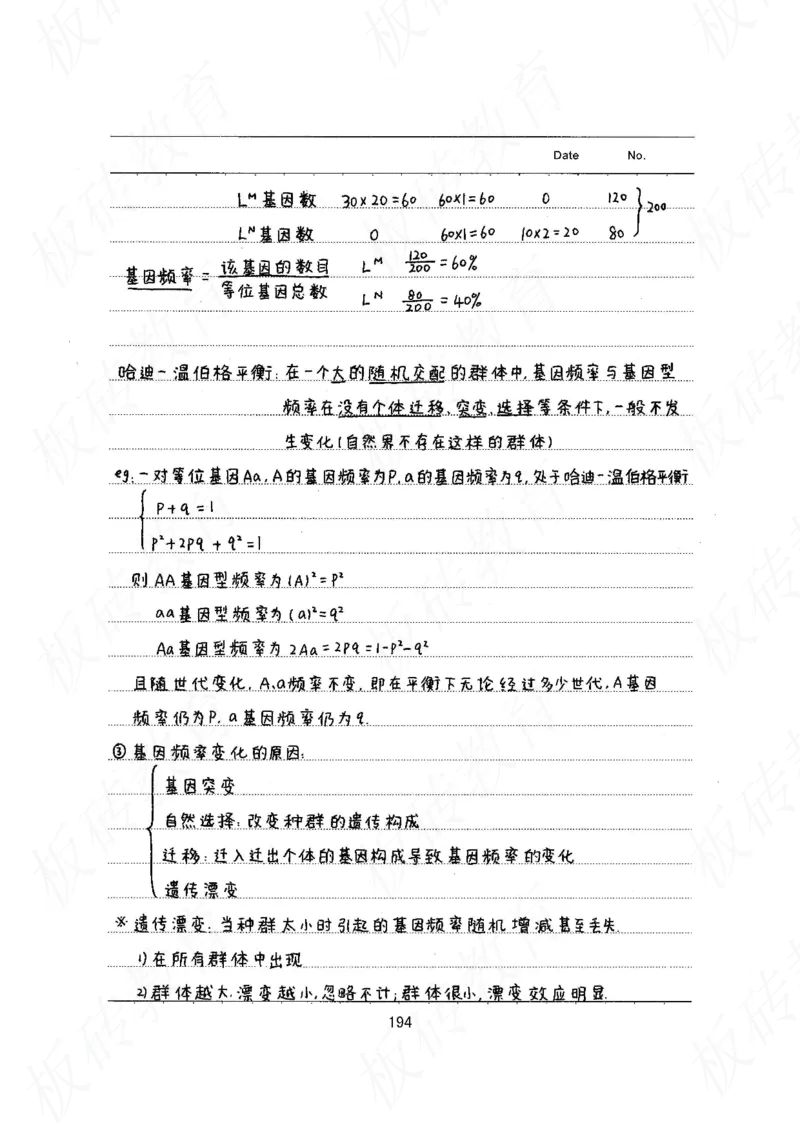 Date No.
L^M 基因数 30×20=60 60×1=60 0 120 } 200
L^N 基因数 0 60×1=60 10×2=20 80
基因频率 = 该基因的数目/等位基因总数 L^M 120/200 = 60%
L^N 80/200 = 40%
哈迪-温伯格平衡: 在一个大的随机交配的群体中, 基因频率与基因型
频率在没有个体迁移、突变、选择等条件下, 一般不发
生变化(自然界不存在这样的群体)
eg: 一对等位基因Aa, A的基因频率为P, a的基因频率为q, 处于哈迪-温伯格平衡
P+q=1
P²+2Pq+q²=1
则AA基因型频率为(A)²=P²
aa基因型频率为(a)²=q²
Aa基因型频率为2Aa=2Pq=1-P²-q²
且随世代变化, A、a频率不变, 即在平衡下无论经过多少世代, A基因
频率仍为P, a基因频率仍为q.
③基因频率变化的原因:
基因突变
自然选择: 改变种群的遗传构成
迁移: 迁入迁出个体的基因构成导致基因频率的变化
遗传漂变
※遗传漂变: 当种群太小时引起的基因频率随机增减甚至丢失.
1)在所有群体中出现
2)群体越大, 漂变越小, 忽略不计; 群体很小, 漂变效应明显.
194
板砖教育